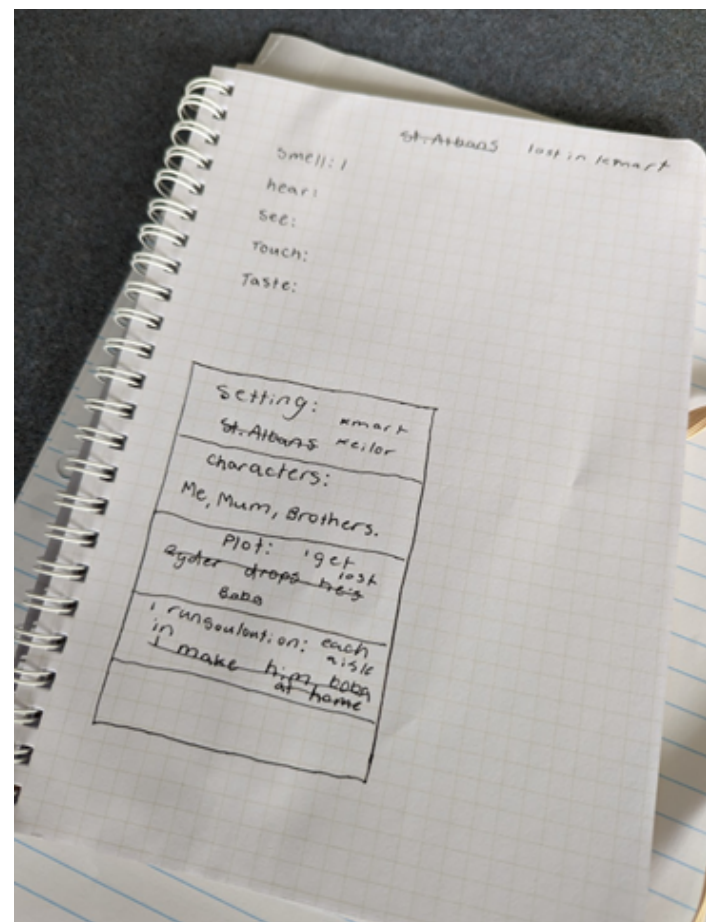 St.Albans lost in kmart
Smell: I
hear:
See:
Touch:
Taste:
Setting: kmart
St.Albans keilor
Characters:
Me, Mum, Brothers.
Plot: I get
lost
drops his
Boba
I run soulontion: each
in aisle
I make him boba
at home